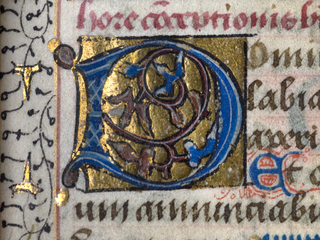 hore cõceptionis b
Domi
labia
aperi
Et
um annunciabi